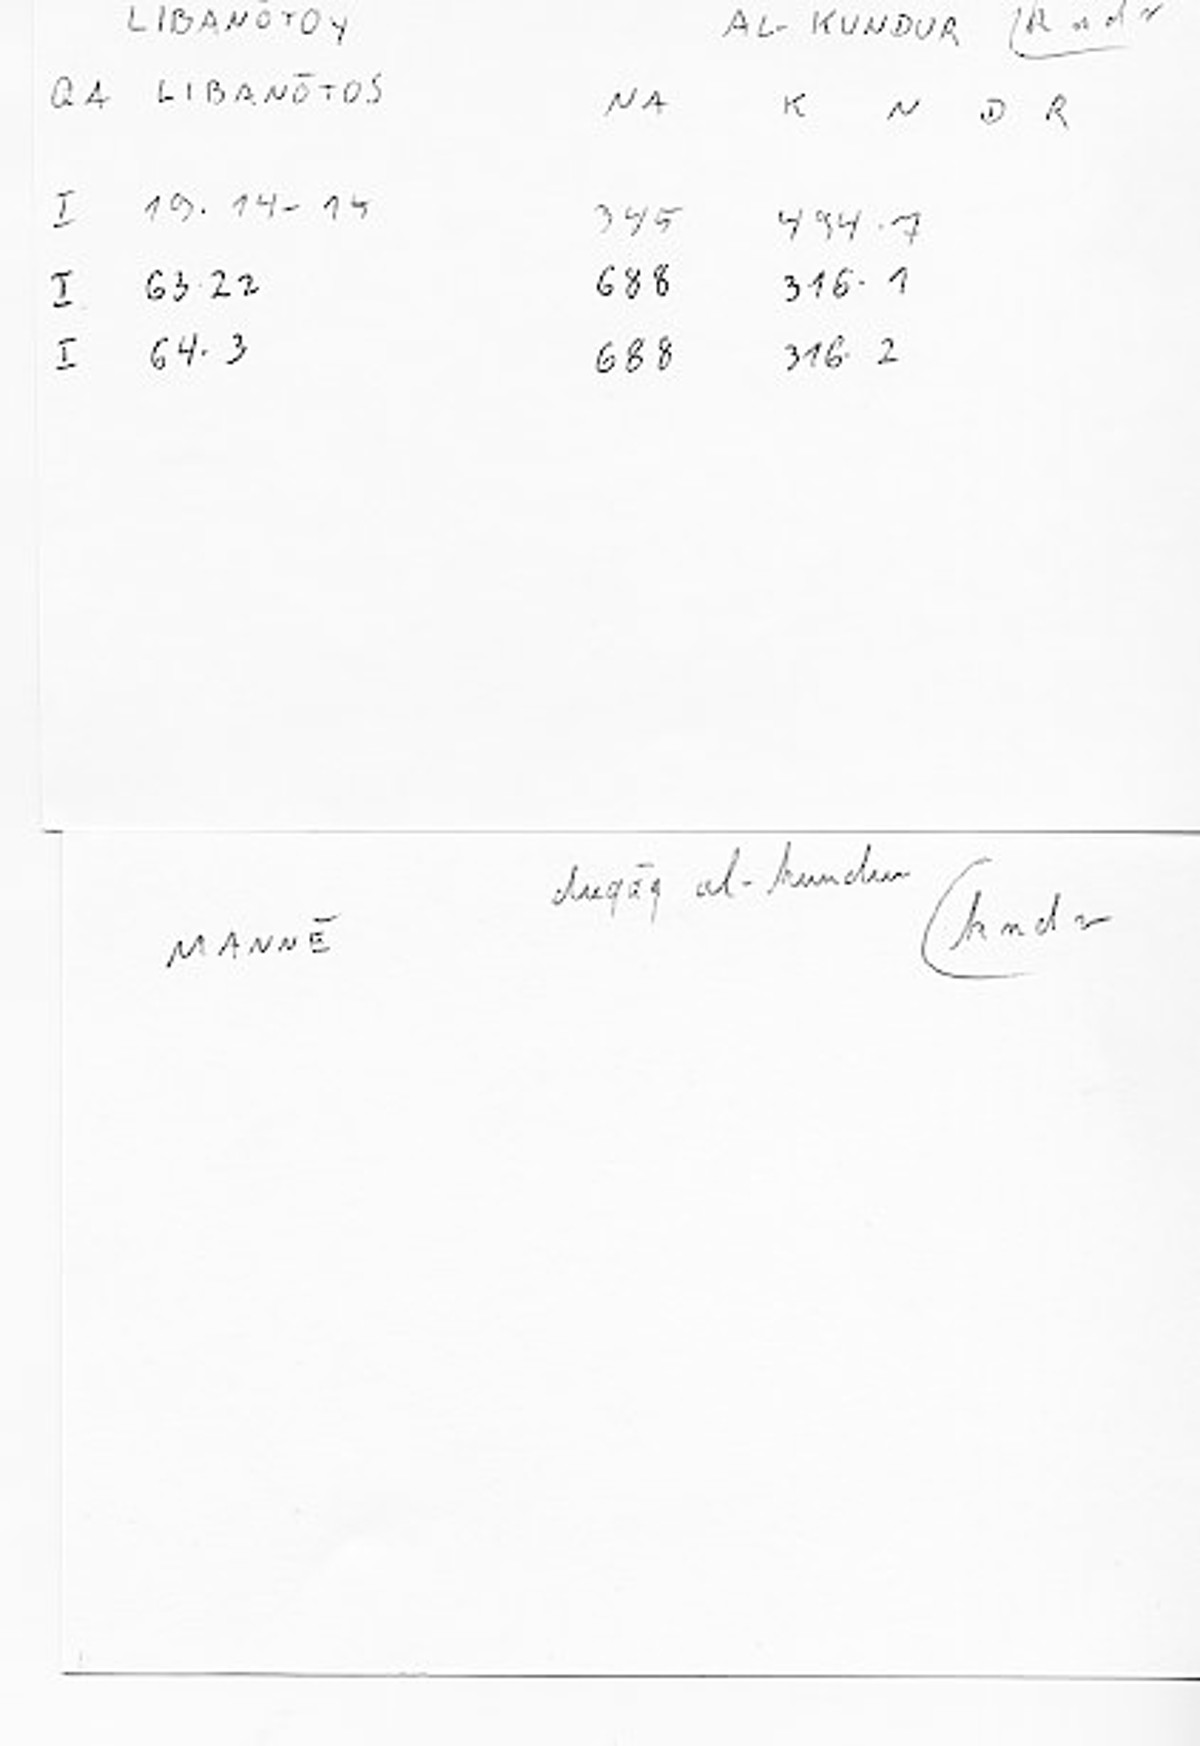 LIBANŌTOY AL-KUNDUR (kndr
QA LIBANŌTOS NA K N D R
I 19. 14-15 345 494.7
I 63.22 688 316.1
I 64.3 688 316.2
duqāq al-kundur
MANNĒ (kndr